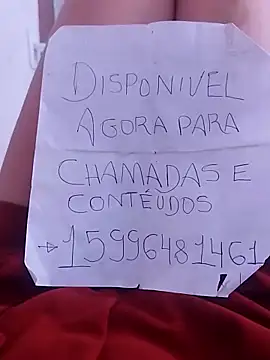 DISPONIVEL
AGORA PARA
CHAMADAS E
CONTEÚDOS
→15996481461